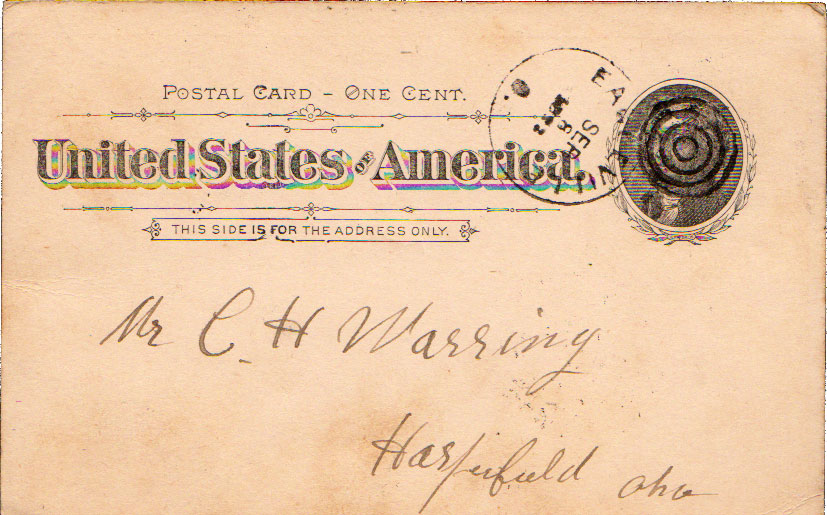 POSTAL CARD - ONE CENT.
United States OF America.
THIS SIDE IS FOR THE ADDRESS ONLY.
SEP
8
O.
Mr C. H Warring
Harpersfield Ohio